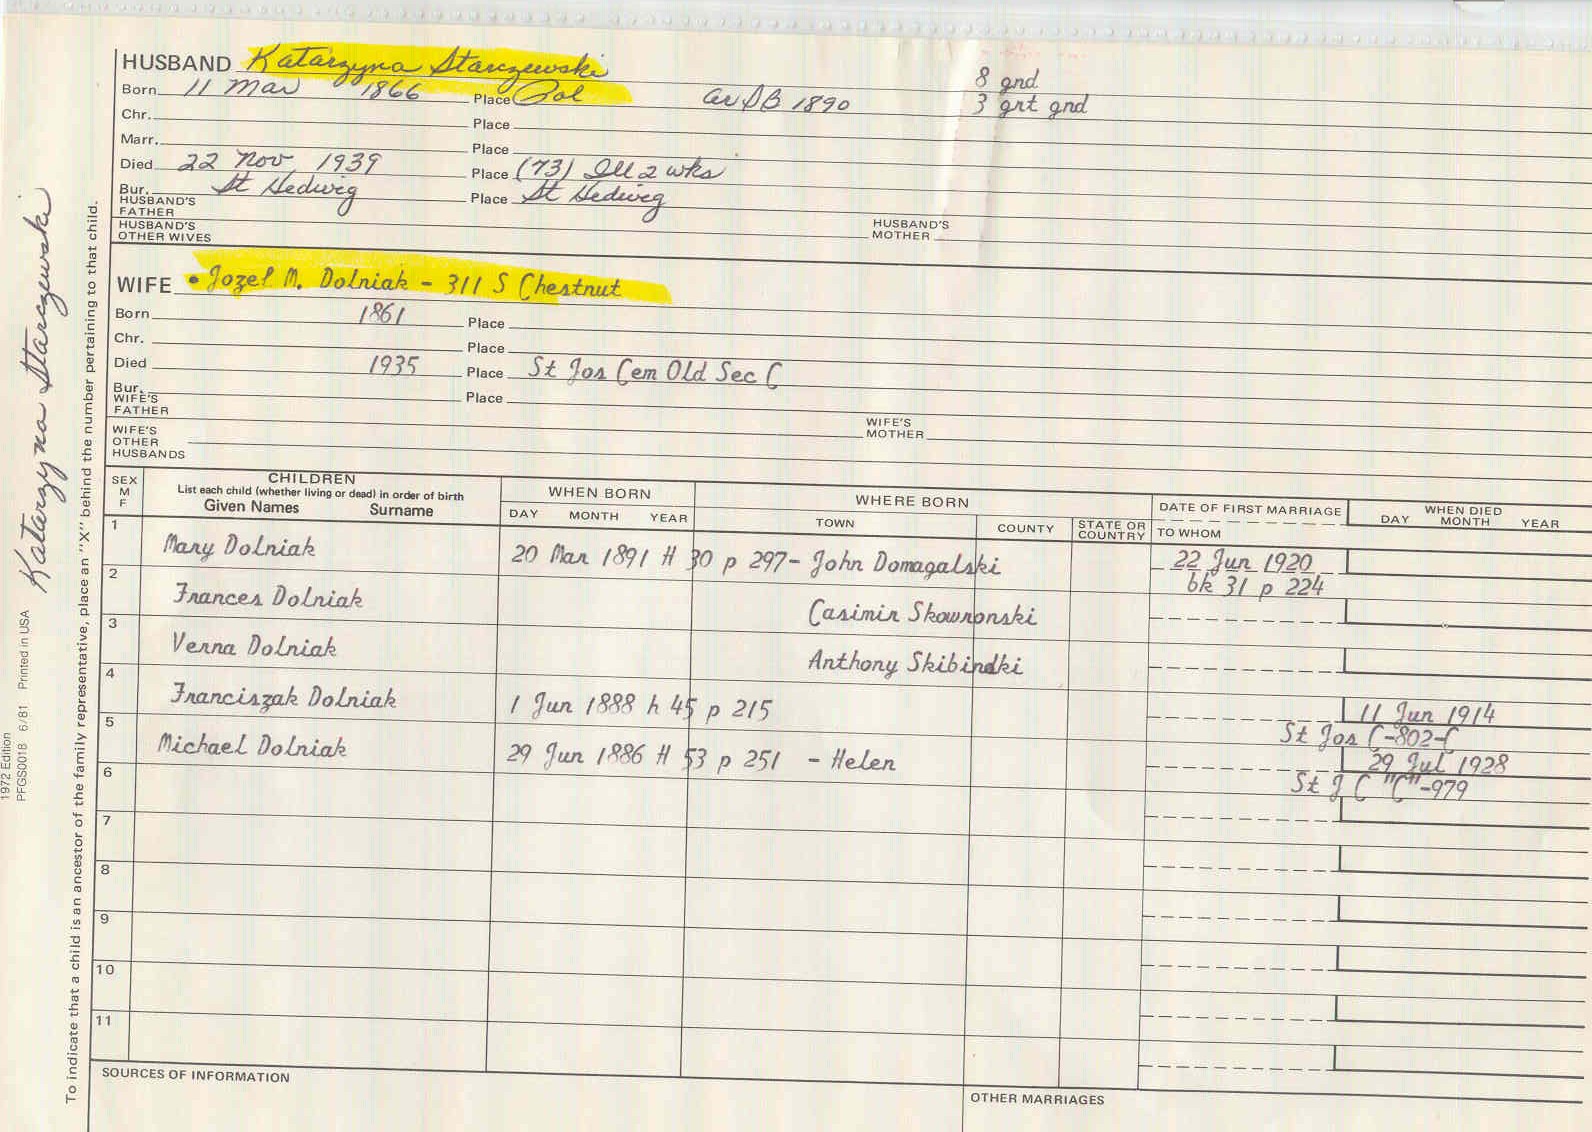 HUSBAND Katarzyna Starczewski
8 gnd
Born 11 Mar 1866 Place Pol arr SB 1890 3 grt gnd
Chr. Place
Marr. Place
Died 22 Nov 1939 Place (73) Ill 2 wks
Bur. St Hedwig Place St Hedwig
HUSBAND'S FATHER HUSBAND'S MOTHER
HUSBAND'S OTHER WIVES
WIFE • Jozef M. Dolniak - 311 S Chestnut
Born 1861 Place
Chr. Place
Died 1935 Place St Jos Cem Old Sec C
Bur. Place
WIFE'S FATHER WIFE'S MOTHER
WIFE'S OTHER HUSBANDS
SEX M F
CHILDREN
List each child (whether living or dead) in order of birth
Given Names Surname
WHEN BORN
DAY MONTH YEAR
WHERE BORN
TOWN COUNTY STATE OR COUNTRY
DATE OF FIRST MARRIAGE
TO WHOM
WHEN DIED
DAY MONTH YEAR
1 Mary Dolniak 20 Mar 1891 H 30 p 297- John Domagalski 22 Jun 1920
bk 31 p 224
2 Frances Dolniak Casimir Skowronski
3 Verna Dolniak Anthony Skibinski
4 Franciszak Dolniak 1 Jun 1888 h 45 p 215 11 Jun 1914
St Jos C-802-C
5 Michael Dolniak 29 Jun 1886 H 53 p 251 - Helen 29 Jul 1928
St J C "C"-979
6
7
8
9
10
11
SOURCES OF INFORMATION
OTHER MARRIAGES
Katarzyna Starczewski
To indicate that a child is an ancestor of the family representative, place an "X" behind the number pertaining to that child.
1972 Edition
PFGS0018 6/81 Printed in USA